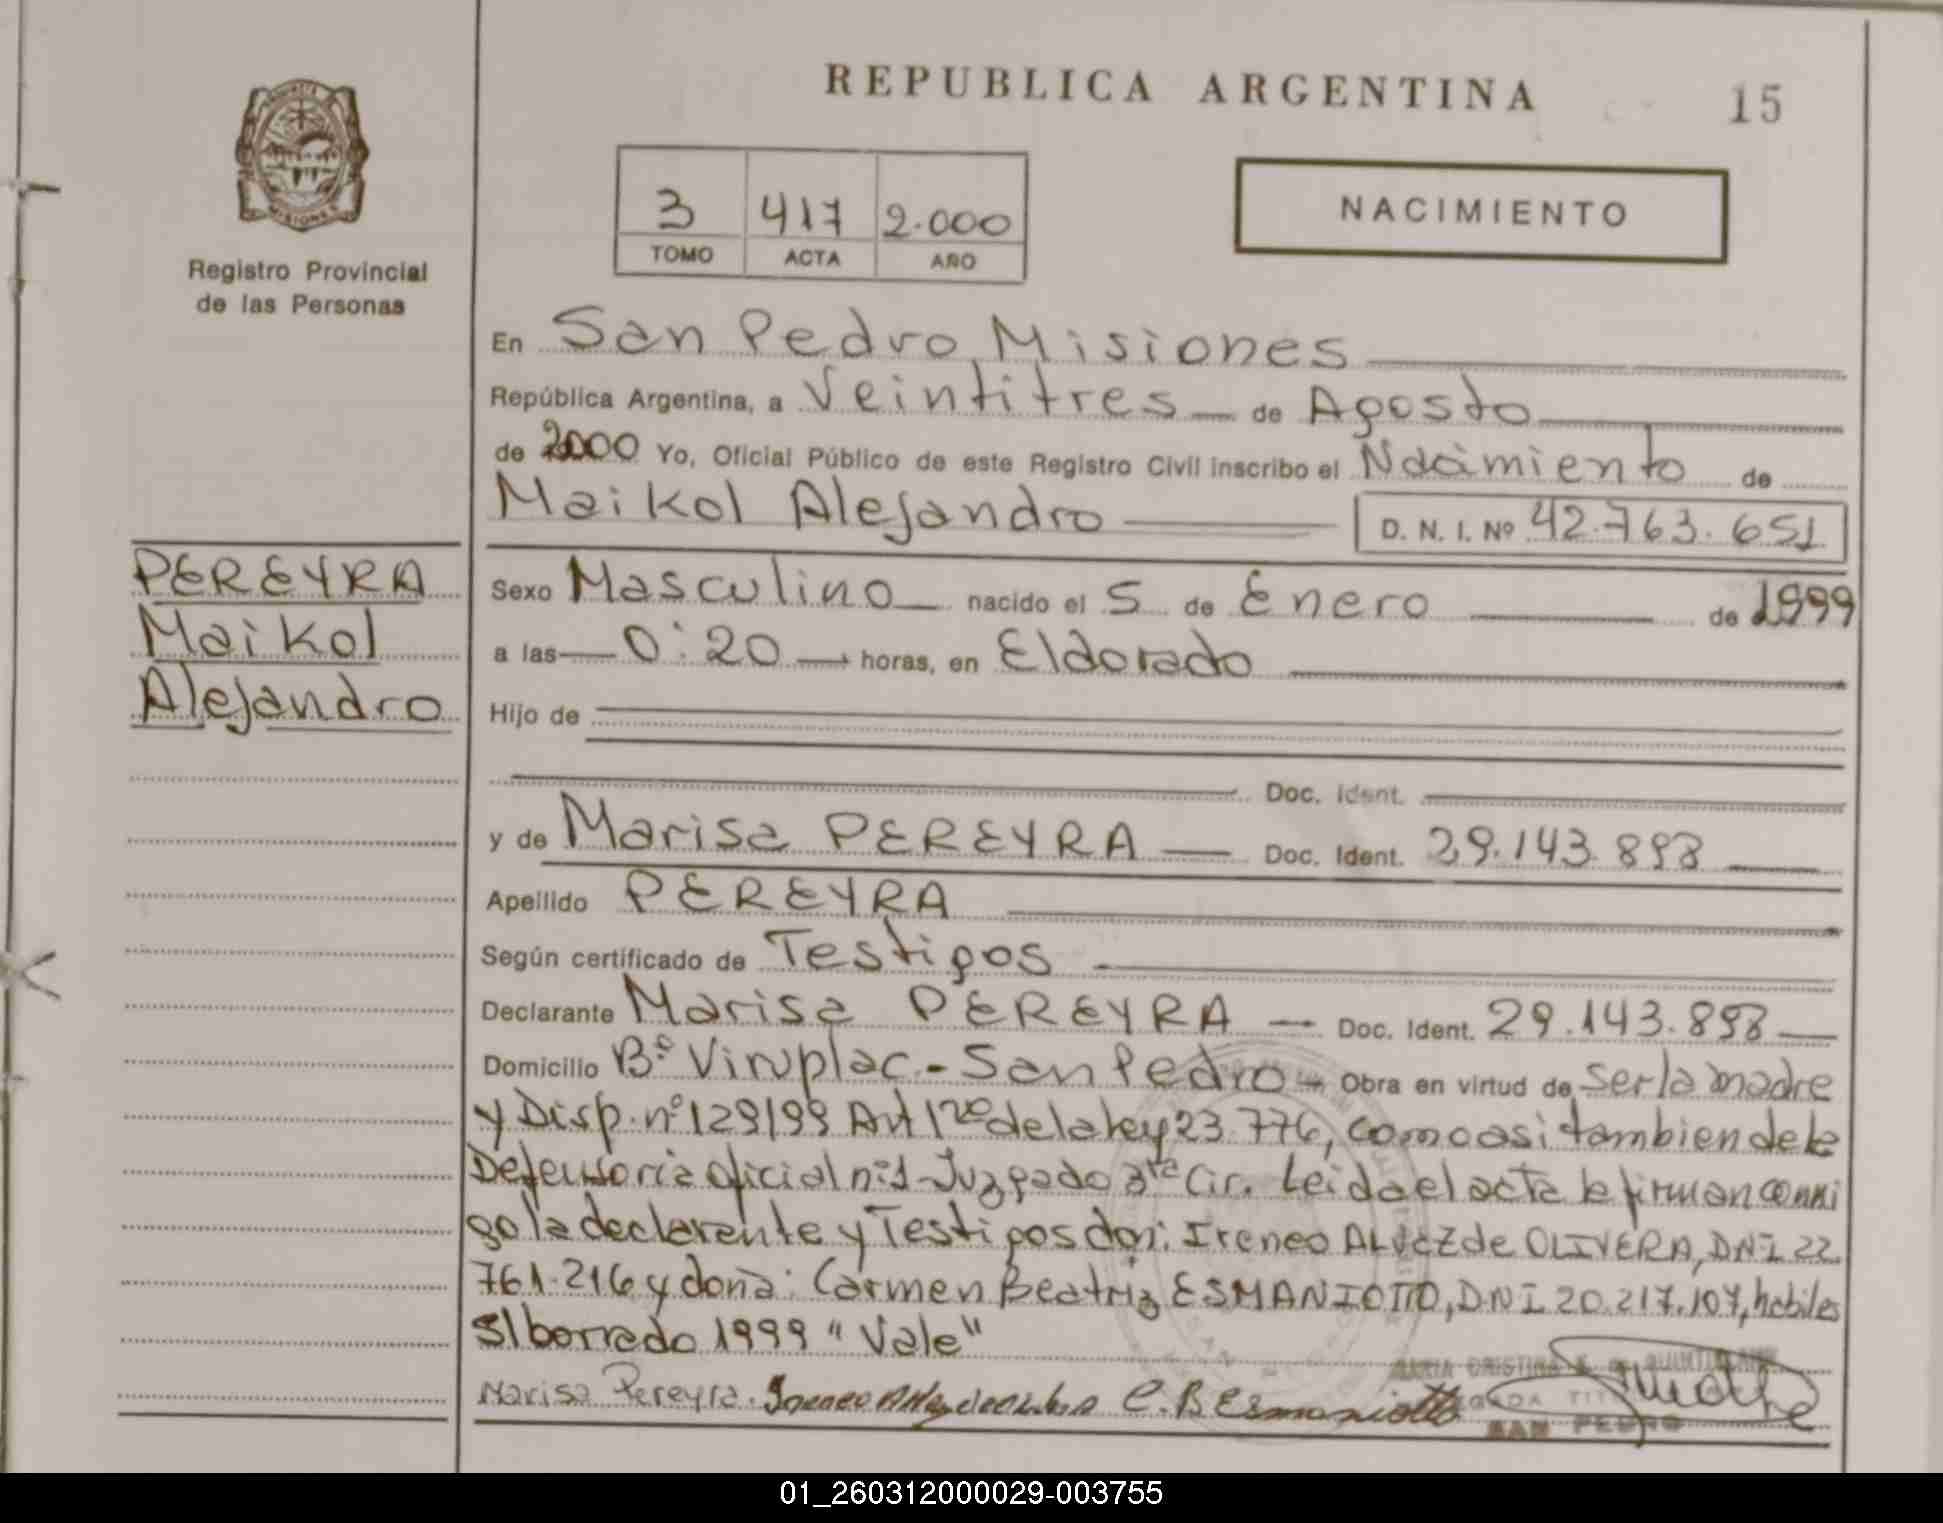 REPUBLICA ARGENTINA
15
MISIONES
Registro Provincial
de las Personas
3 417 2.000
TOMO ACTA AÑO
NACIMIENTO
En San Pedro, Misiones
República Argentina, a Veintitres de Agosto
de 2000 Yo, Oficial Público de este Registro Civil inscribo el Nacimiento de
Maikol Alejandro D. N. I. Nº 42.763.651
PEREYRA
Maikol
Alejandro
Sexo Masculino nacido el 5 de Enero de 1999
a las 0:20 horas, en Eldorado
Hijo de
Doc. Ident.
y de Marisa PEREYRA Doc. Ident. 29.143.898
Apellido PEREYRA
Según certificado de Testigos
Declarante Marisa PEREYRA Doc. Ident. 29.143.898
Domicilio Bº Viruplac.- San Pedro Obra en virtud de ser la madre
y Disp. nº 129/99 Art 12º de la ley 23.776, como asi tambien de la
Defensoria oficial nº1 Juzgado 3ra Cir. Leida el acta la firman conmi
go la declarante y Testigos don: Ireneo ALVEZ de OLIVERA, DNI 22.
761.216 y doña: Carmen Beatriz ESMANIOTTO, DNI 20.217.107, habiles
S/borrado 1999 "Vale"
Marisa Pereyra. C. B Esmaniotto
MARIA CRISTINA
TIT
SAN PEDRO
01_260312000029-003755